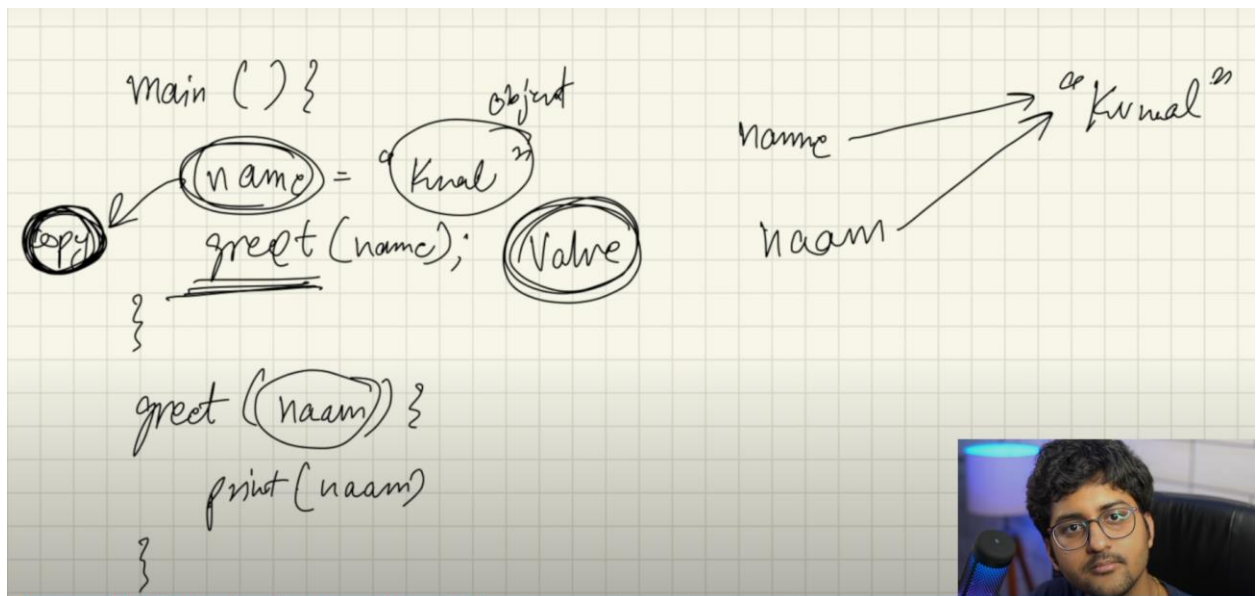 main () {
object
name = "Kunal"
copy
greet (name); Value
}
greet (naam) {
print (naam)
}
name
naam
"Kunal"